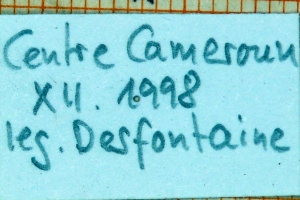 Centre Cameroun
XII. 1998
leg. Desfontaine